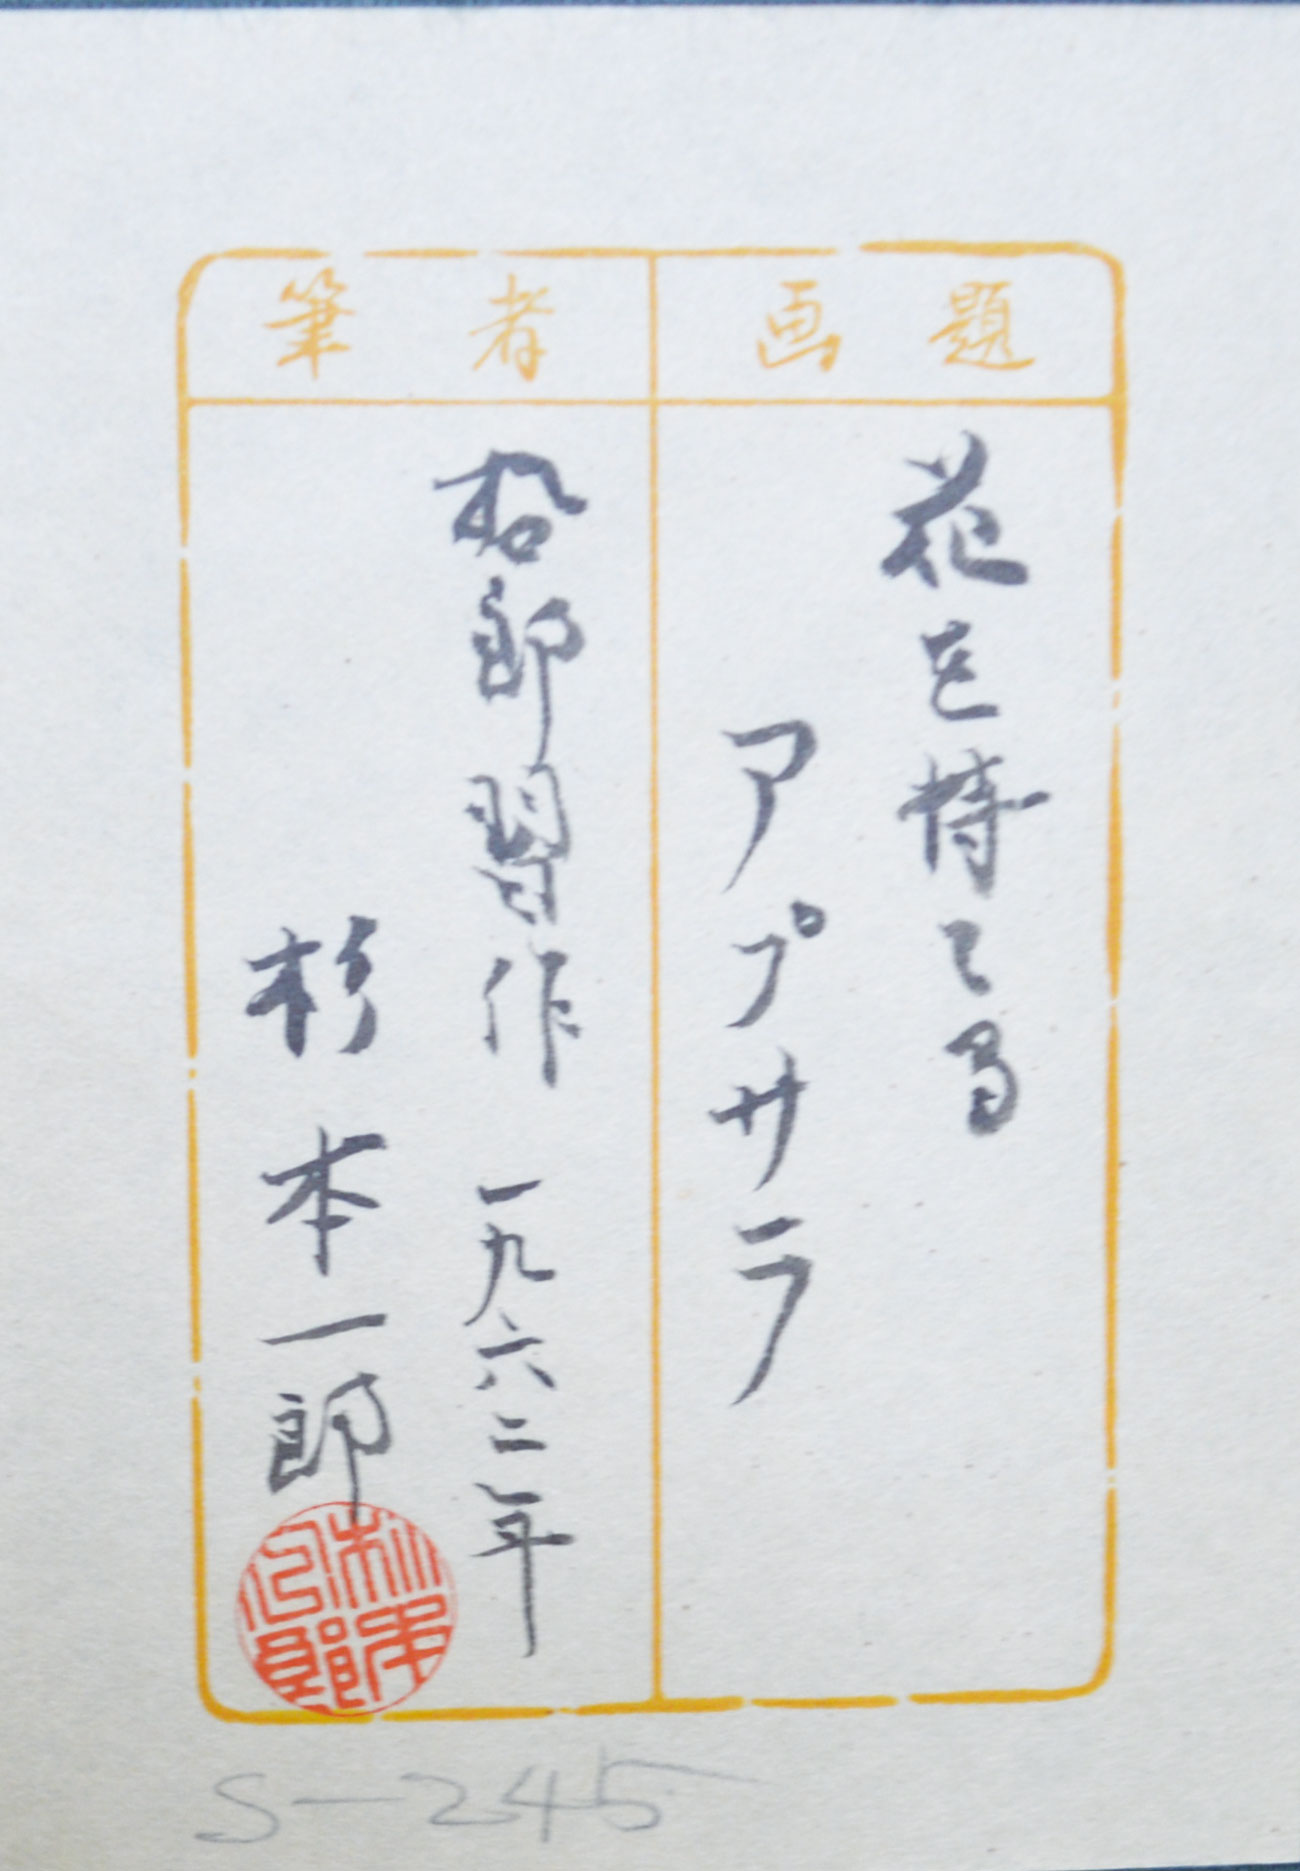 画題
花を持てる
アプサラ
筆者
哲郎習作 一九六二年
杉本一郎
S-245